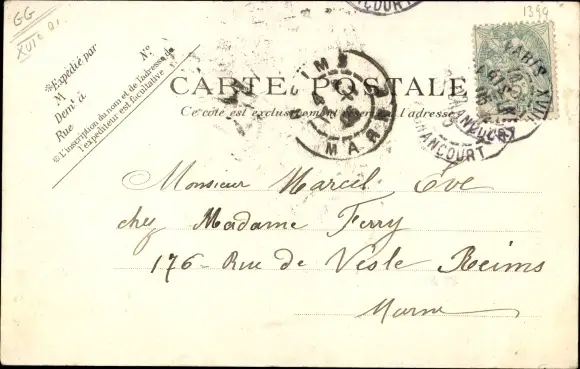 GG
1394
※Expédié par
M
Nº
Demt à
Rue
※L'inscription du nom et de l'adresse de
l'expéditeur est facultative
CARTE POSTALE
Ce côté est exclusivement l'adresse
MARNE
PARIS XVII
Monsieur Marcel Eve
chez Madame Ferry
176 - Rue de Vesle Reims
Marne